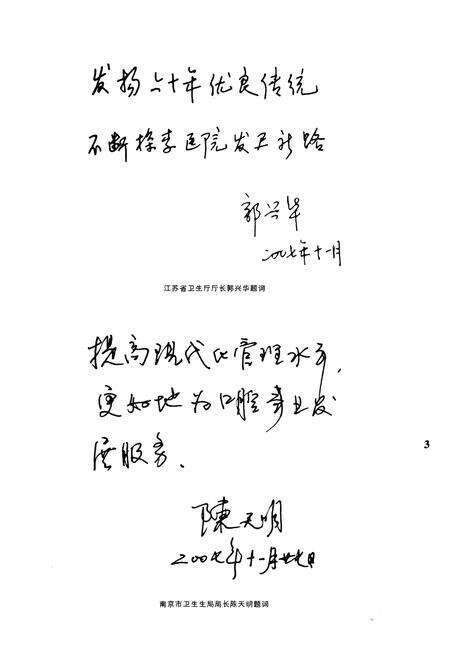 发扬六十年优良传统
不断探索医院发展新路
郭兴华
二〇〇七年十一月
江苏省卫生厅厅长郭兴华题词
提高现代化管理水平,
更好地为口腔事业发
展服务.
陳天明
二〇〇七年十一月廿七日
南京市卫生生局局长陈天明题词
3